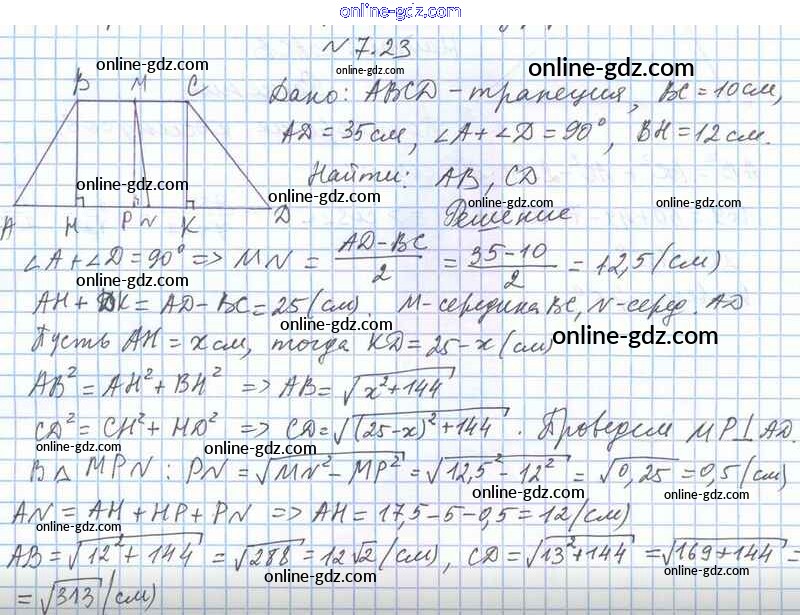 online-gdz.com
N 7.23
online-gdz.com
online-gdz.com
B M C
Дано: ABCD - трапеция, BC = 10 см,
online-gdz.com
online-gdz.com
AD = 35 см, ∠A + ∠D = 90°, BH = 12 см.
online-gdz.com
Найти: AB, CD
online-gdz.com
online-gdz.com
online-gdz.com
A H P N K D
Решение
∠A + ∠D = 90° => MN = (AD - BC)/2 = (35 - 10)/2 = 12,5 (см)
online-gdz.com
AH + DK = AD - BC = 25 (см). M - середина BC, N - серед. AD
online-gdz.com
online-gdz.com
Пусть AH = x см, тогда KD = 25 - x (см)
AB² = AH² + BH² => AB = √(x² + 144)
CD² = CH² + HD² => CD = √((25 - x)² + 144). Проведем MP ⊥ AD.
online-gdz.com
online-gdz.com
В △ MPN: PN = √(MN² - MP²) = √(12,5² - 12²) = √0,25 = 0,5 (см)
online-gdz.com
online-gdz.com
AN = AH + HP + PN => AH = 17,5 - 5 - 0,5 = 12 (см)
online-gdz.com
online-gdz.com
AB = √(12² + 144) = √288 = 12√2 (см), CD = √(13² + 144) = √(169 + 144) =
online-gdz.com
online-gdz.com
= √313 (см)